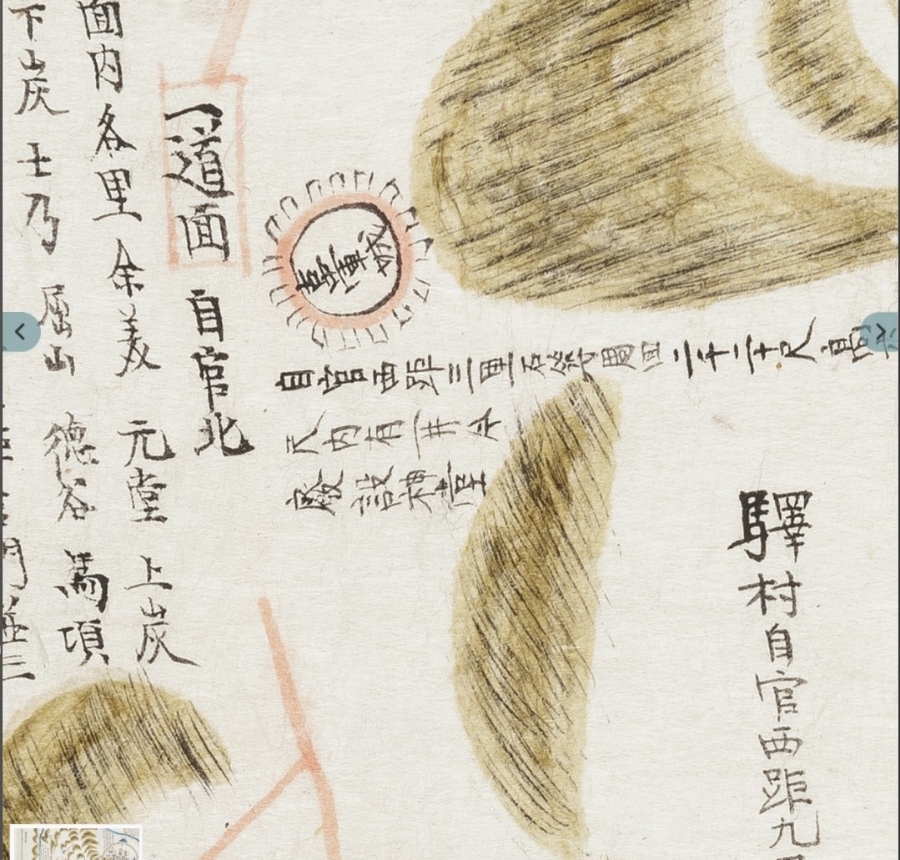 驛村自官西距九
城
自官西距三里石築周四二千二十尺高
尺內有一井今
廢設神堂
道面 自官北
面內各里 余美 元堂 上炭
下炭 士乃 屈山 德谷 馬項
門
三